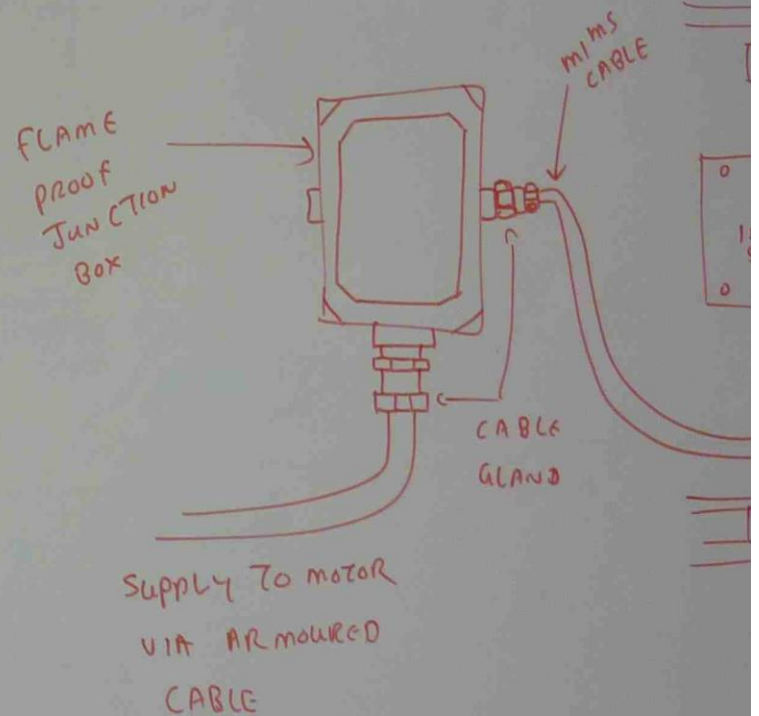 FLAME
PROOF
JUNCTION
BOX
MIMS
CABLE
CABLE
GLAND
SUPPLY TO MOTOR
VIA ARMOURED
CABLE